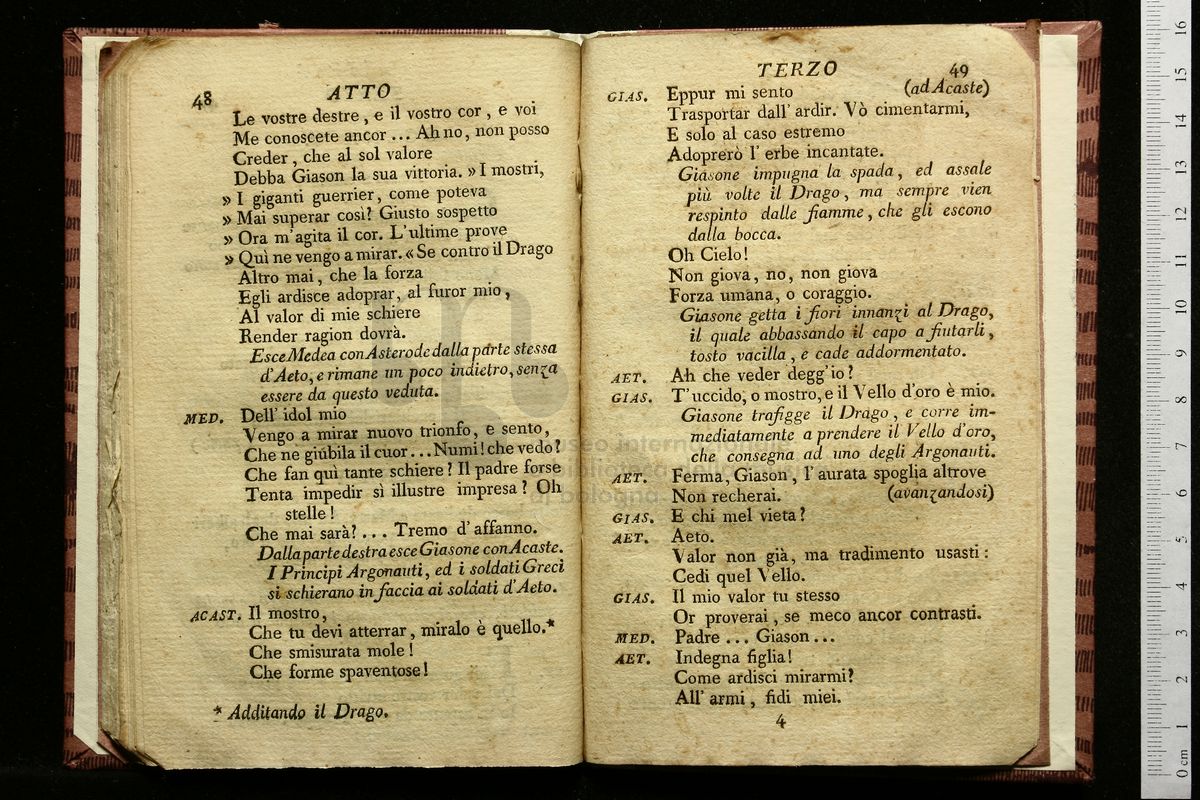 48 ATTO
Le vostre destre, e il vostro cor, e voi
Me conoscete ancor ... Ah no, non posso
Creder, che al sol valore
Debba Giason la sua vittoria. » I mostri,
» I giganti guerrier, come poteva
» Mai superar così? Giusto sospetto
» Ora m'agita il cor. L'ultime prove
» Quì ne vengo a mirar. « Se contro il Drago
Altro mai, che la forza
Egli ardisce adoprar, al furor mio,
Al valor di mie schiere
Render ragion dovrà.
Esce Medea con Asterode dalla parte stessa
d'Aeto, e rimane un poco indietro, senza
essere da questo veduta.
MED. Dell' idol mio
Vengo a mirar nuovo trionfo, e sento,
Che ne giúbila il cuor... Numi! che vedo?
Che fan quì tante schiere? Il padre forse
Tenta impedir sì illustre impresa? Oh
stelle!
Che mai sarà? ... Tremo d'affanno.
Dalla parte destra esce Giasone con Acaste.
I Principi Argonauti, ed i soldati Greci
si schierano in faccia ai soldati d'Aeto.
ACAST. Il mostro,
Che tu devi atterrar, miralo è quello.*
Che smisurata mole!
Che forme spaventose!
* Additando il Drago.
TERZO 49
GIAS. Eppur mi sento (ad Acaste)
Trasportar dall' ardir. Vò cimentarmi,
E solo al caso estremo
Adoprerò l' erbe incantate.
Giasone impugna la spada, ed assale
più volte il Drago, ma sempre vien
respinto dalle fiamme, che gli escono
dalla bocca.
Oh Cielo!
Non giova, no, non giova
Forza umana, o coraggio.
Giasone getta i fiori innanzi al Drago,
il quale abbassando il capo a fiutarli,
tosto vacilla, e cade addormentato.
AET. Ah che veder degg'io?
GIAS. T'uccido, o mostro, e il Vello d'oro è mio.
Giasone trafigge il Drago, e corre im-
mediatamente a prendere il Vello d'oro,
che consegna ad uno degli Argonauti.
AET. Ferma, Giason, l'aurata spoglia altrove
Non recherai. (avanzandosi)
GIAS. E chi mel vieta?
AET. Aeto.
Valor non già, ma tradimento usasti:
Cedi quel Vello.
GIAS. Il mio valor tu stesso
Or proverai, se meco ancor contrasti.
MED. Padre ... Giason ...
AET. Indegna figlia!
Come ardisci mirarmi?
All' armi, fidi miei.
4
museo internazionale
e biblioteca della musica
di bologna
0 cm 1 2 3 4 5 6 7 8 9 10 11 12 13 14 15 16